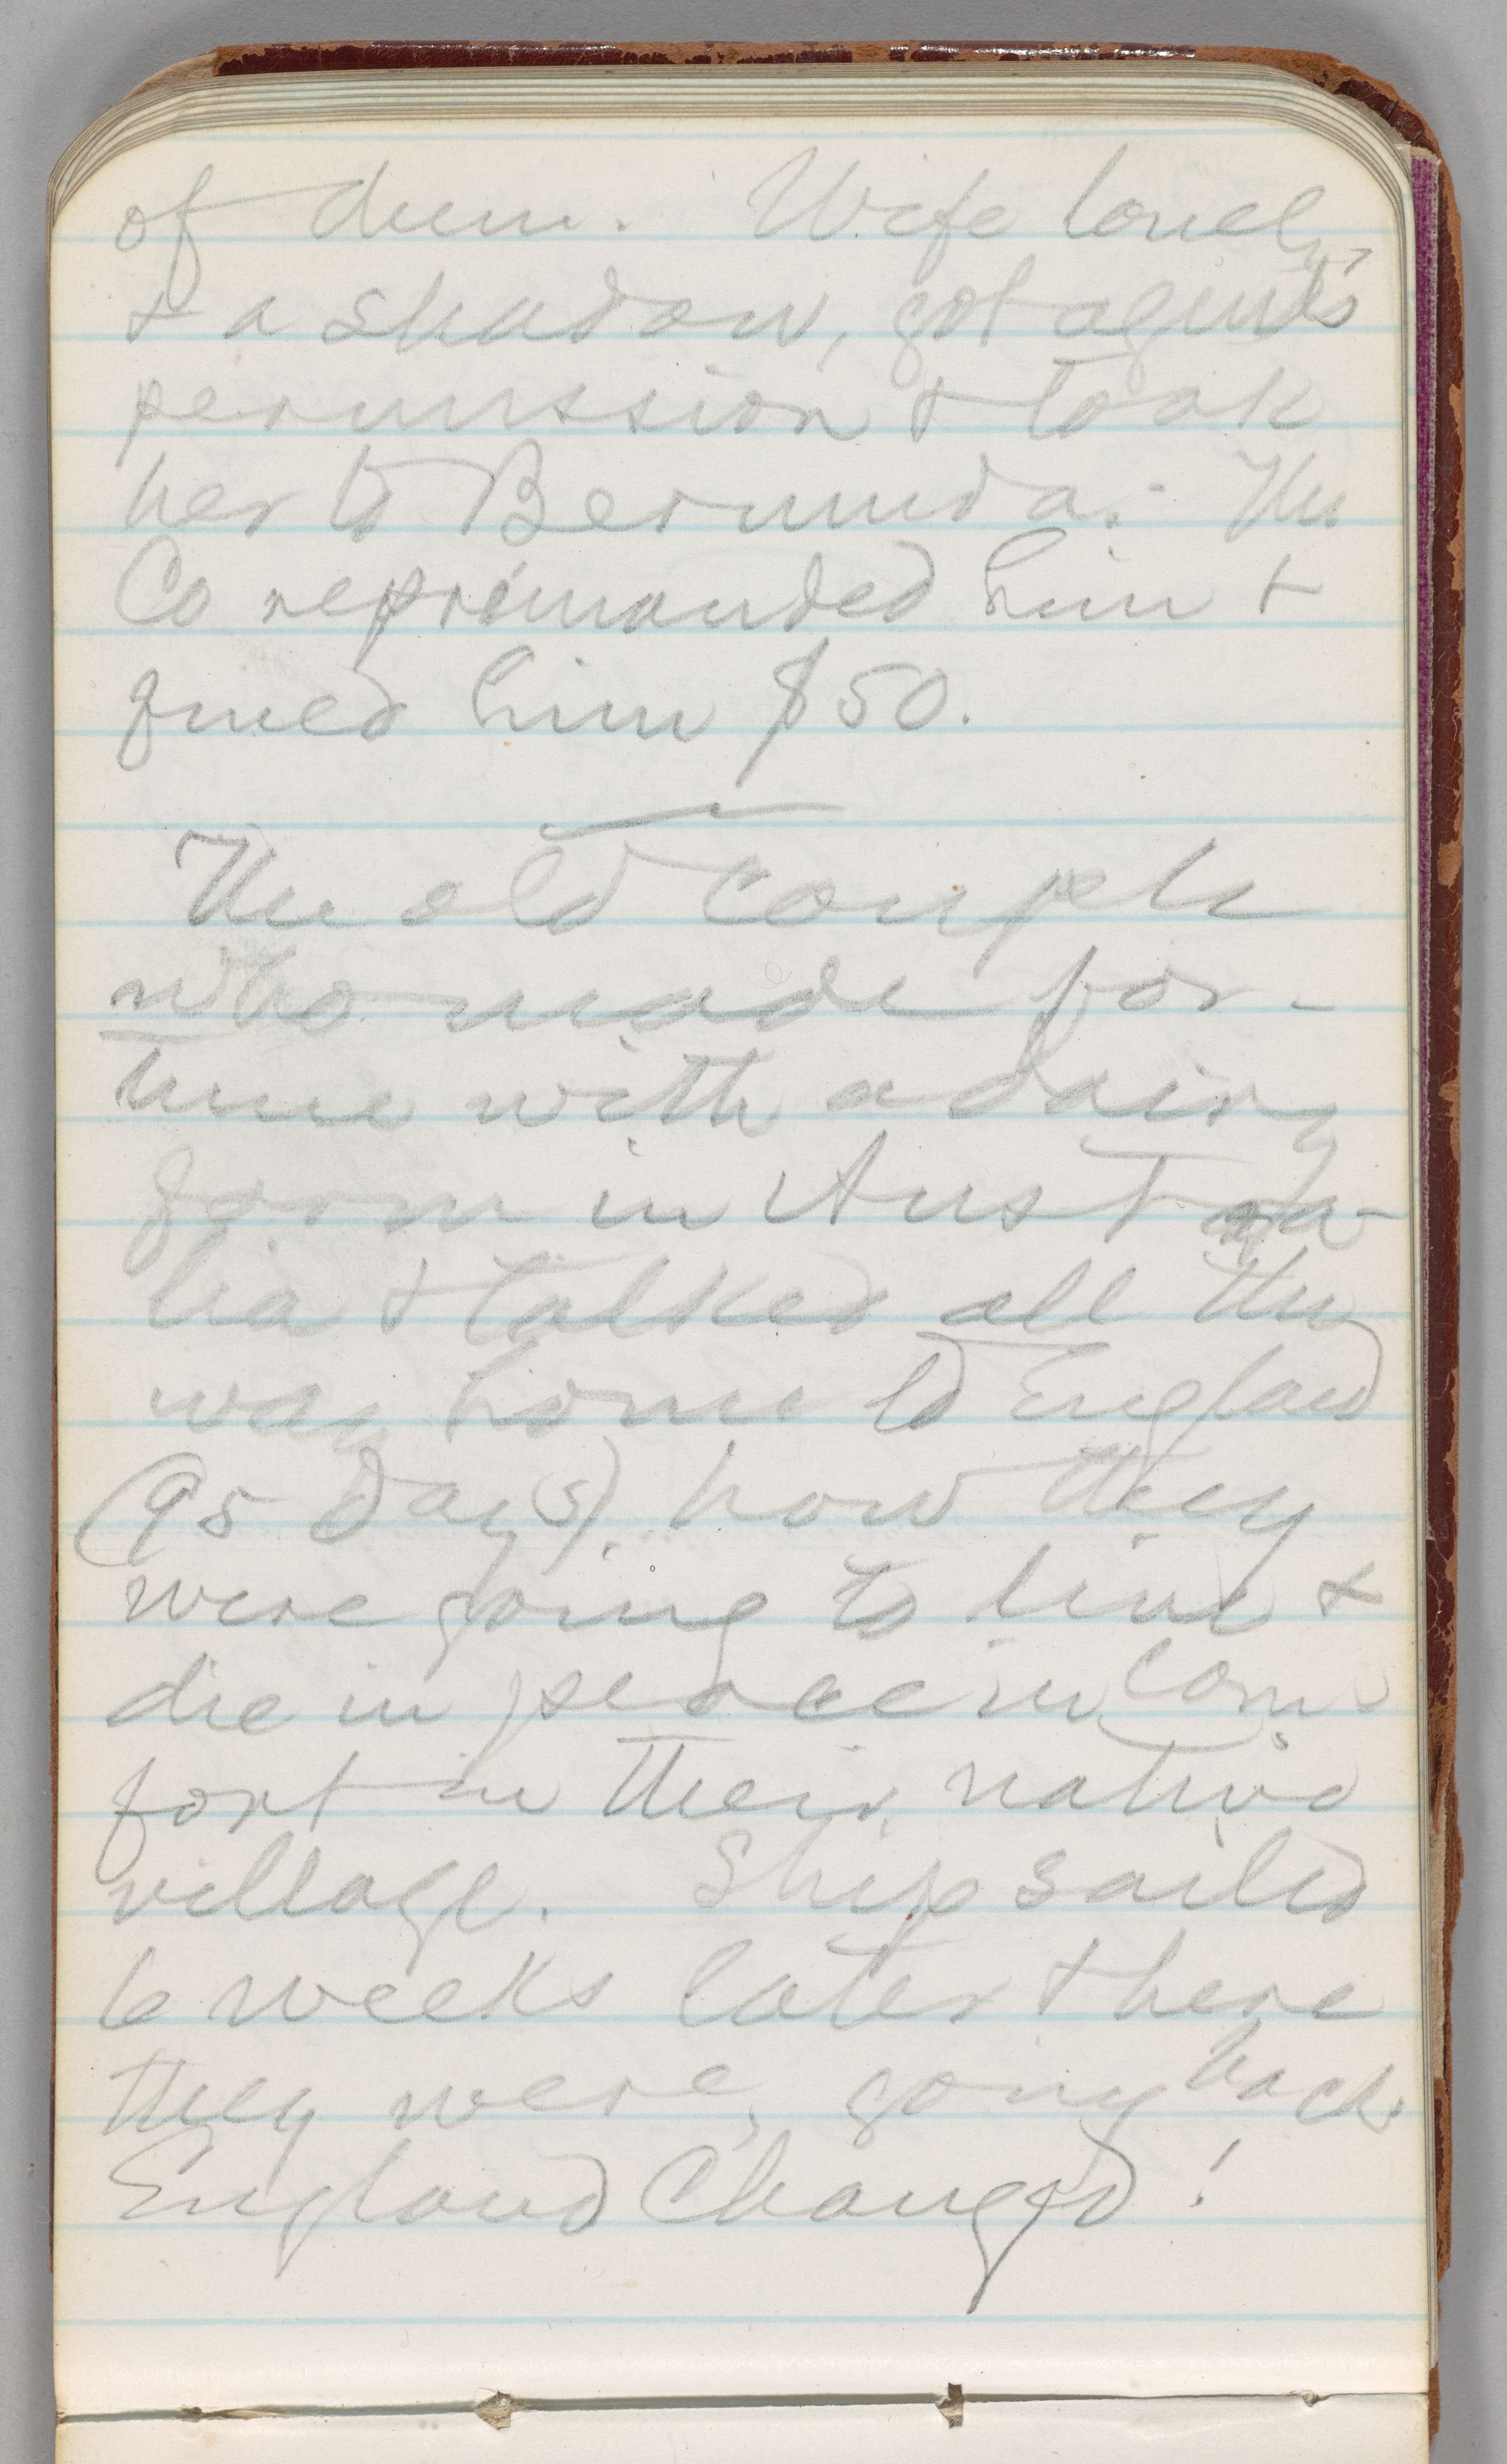 of them. Wife lonely,
& a shadow, got agent's
permission & took
her to Bermuda. The
Co reprimanded him &
fined him $50.
The old couple
who made for-
tune with a dairy
farm in Austra-
lia & talked all the
way home to England
(95 days), how they
were going to live &
die in peace in com-
fort in their native
village. Ship sailed
6 weeks later & here
they were, going back.
England Changed!